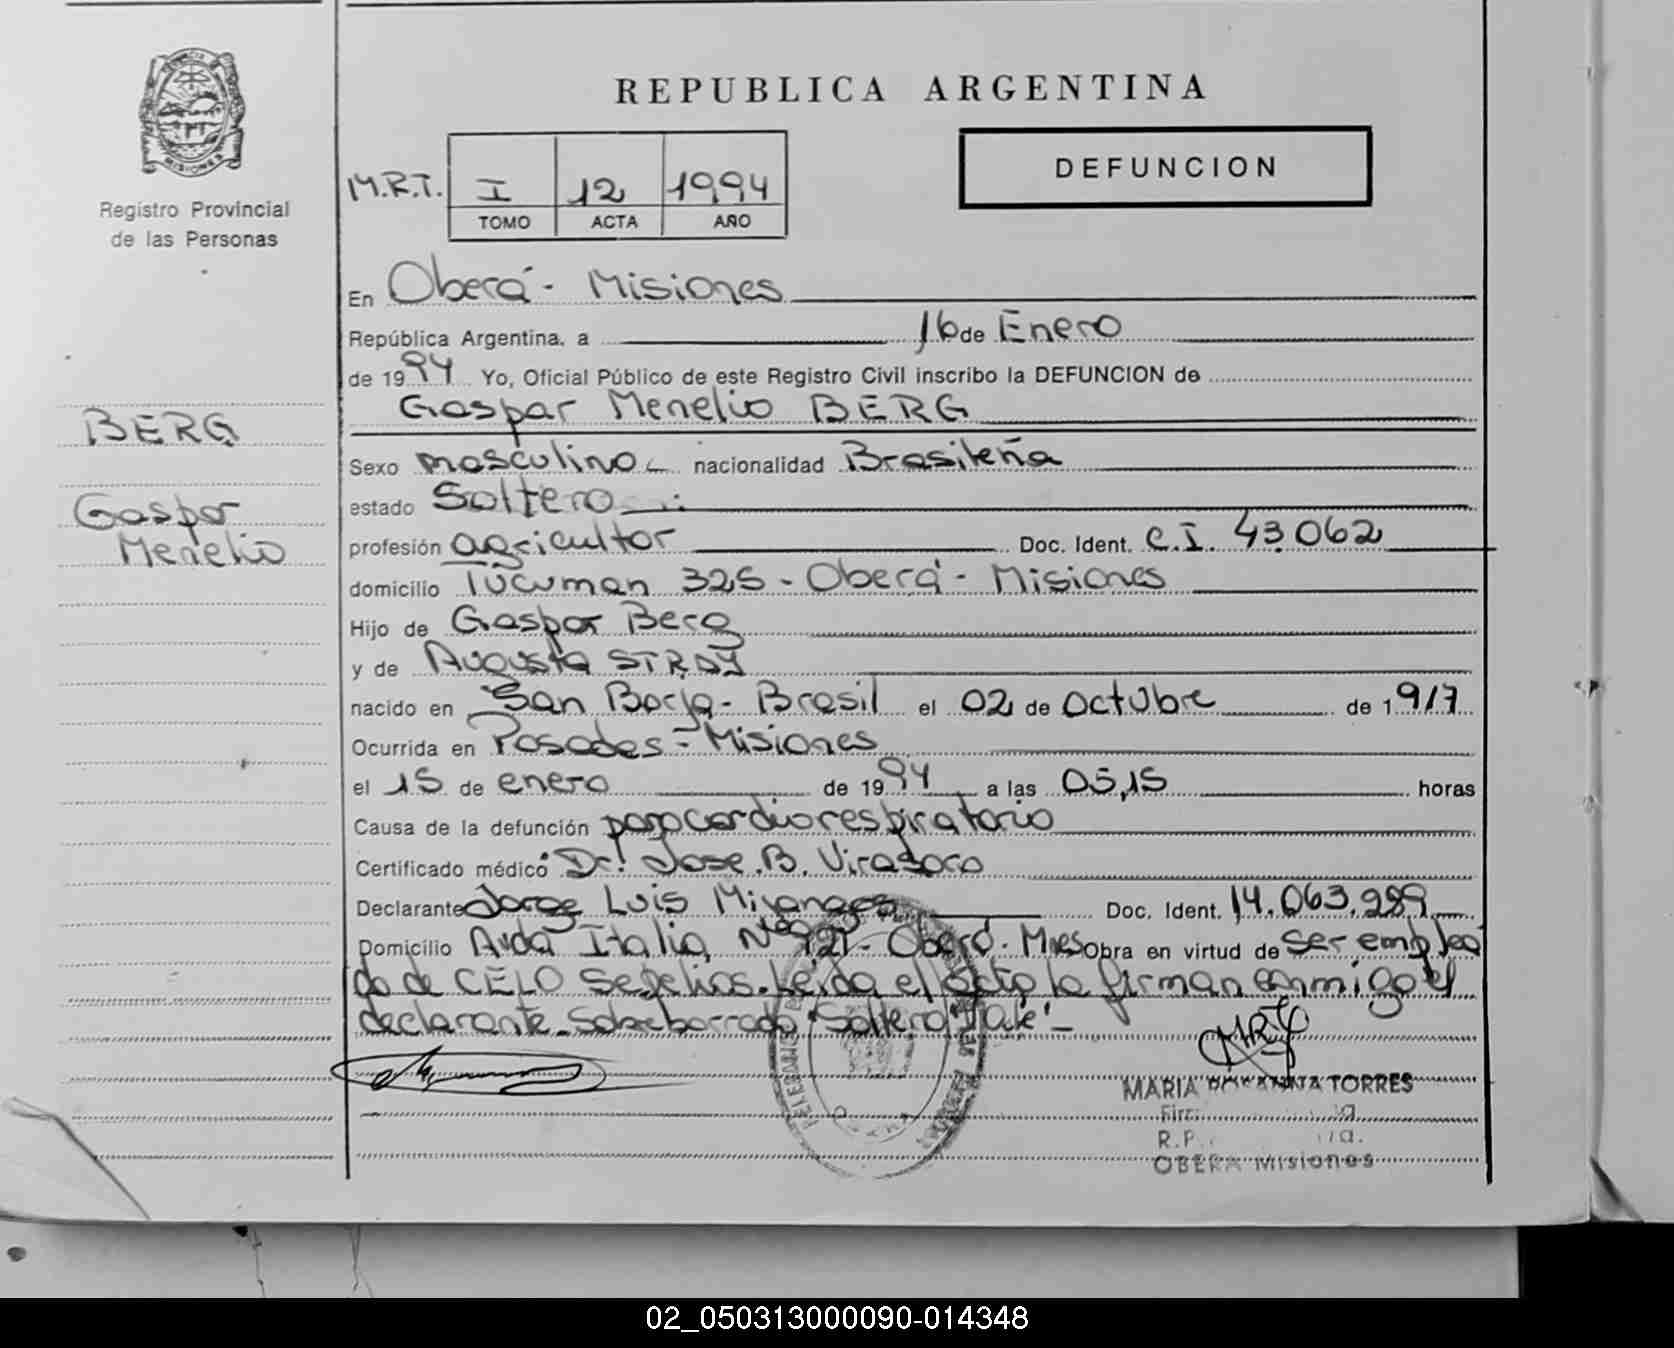 REPUBLICA ARGENTINA
DEFUNCION
M.R.T. I 12 1994
TOMO ACTA AÑO
MISIONES
Registro Provincial
de las Personas
BERG
Gaspar
Menelio
En Oberá - Misiones
República Argentina, a 16 de Enero
de 1994 Yo, Oficial Público de este Registro Civil inscribo la DEFUNCION de
Gaspar Menelio BERG
Sexo masculino nacionalidad Brasileña
estado Soltero
profesión agricultor Doc. Ident. C.I. 43.062
domicilio Tucuman 325 - Oberá - Misiones
Hijo de Gaspar Berg
y de Augusta
nacido en San Borja - Brasil el 02 de Octubre de 1917
Ocurrida en Posadas - Misiones
el 15 de enero de 1994 a las 05,15 horas
Causa de la defunción paro cardiorespiratorio
Certificado médico Dr. Jose B. Virasoro
Declarante Jorge Luis Doc. Ident. 14.063.289
Domicilio Avda Italia Nº - Oberá. Mnes Obra en virtud de ser emplea
do de CELO Sepelios. Leida el acta la firman conmigo el
declarante - Sobreborrado "Soltero" Vale -
MARIA TORRES
R.P.
OBERA Misiones
02_050313000090-014348